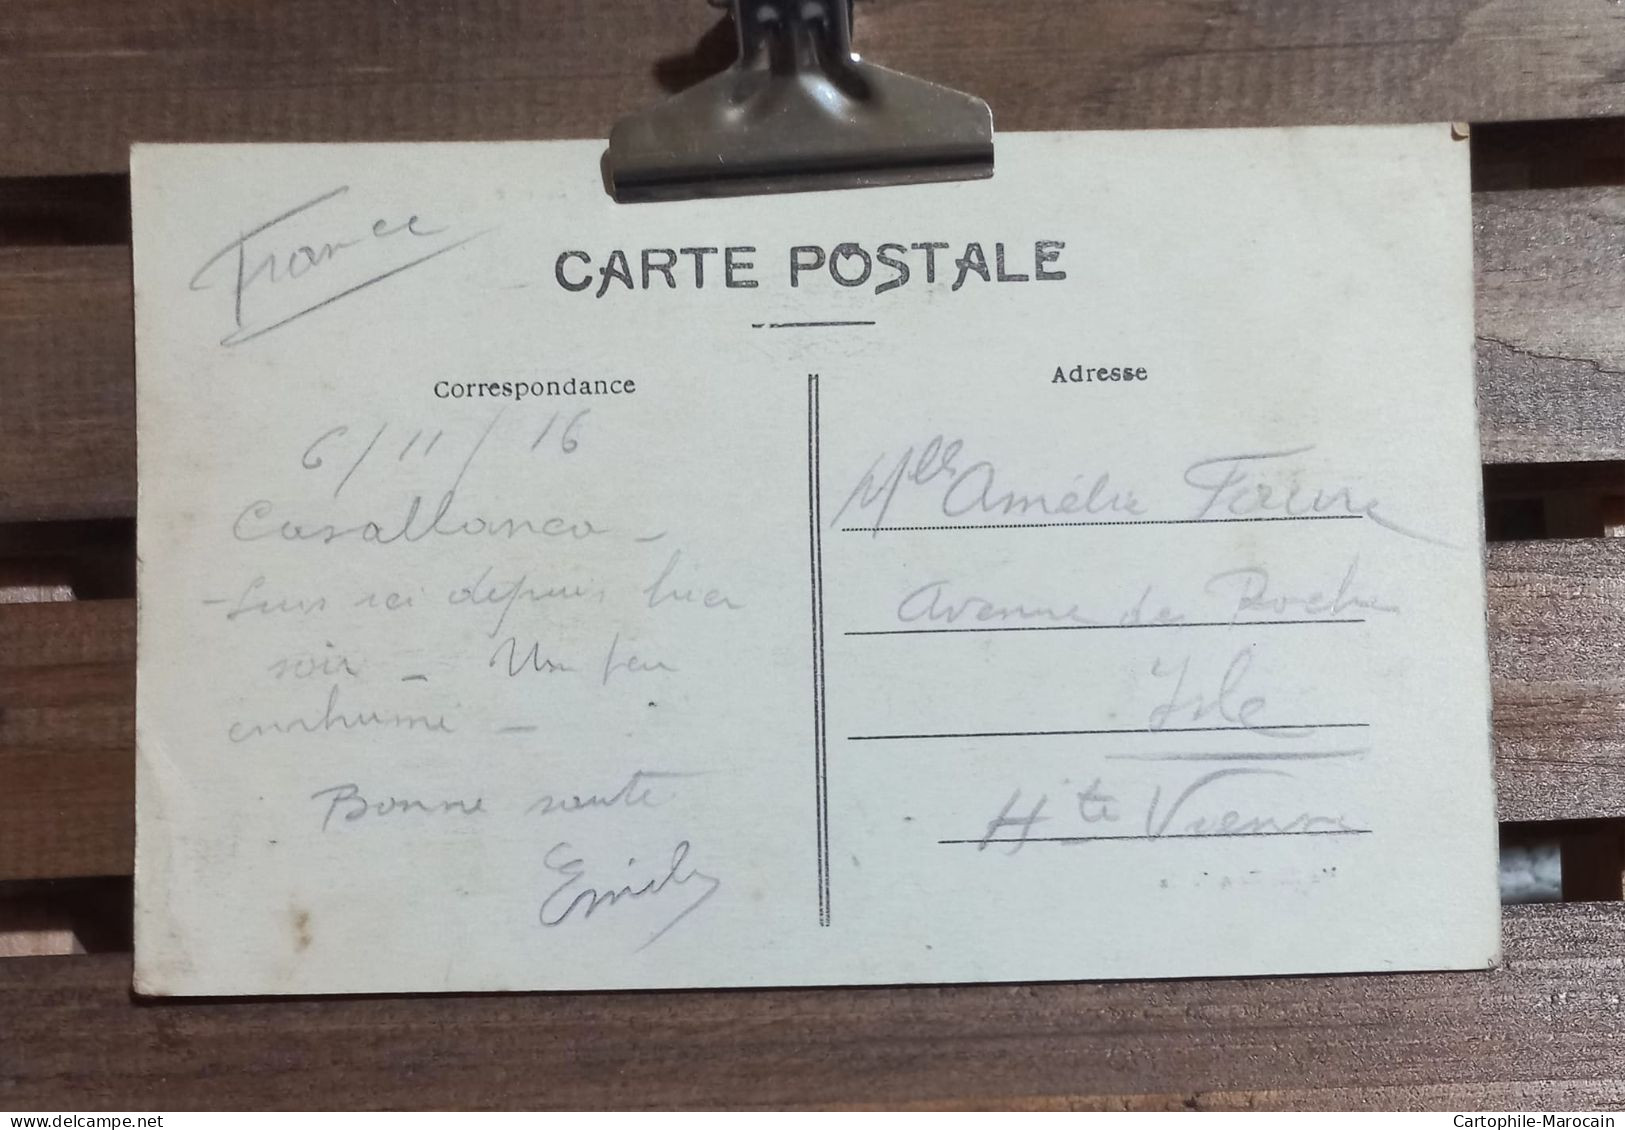 France
CARTE POSTALE
Correspondance
6/11/16
Casablanca -
- Suis ici depuis hier
soir - Un peu
enrhumé -
Bonne santé
Emile
Adresse
Mlle Amélie Faure
Avenue de Roche
Isle
Hte Vienne
Cartophile-Marocain